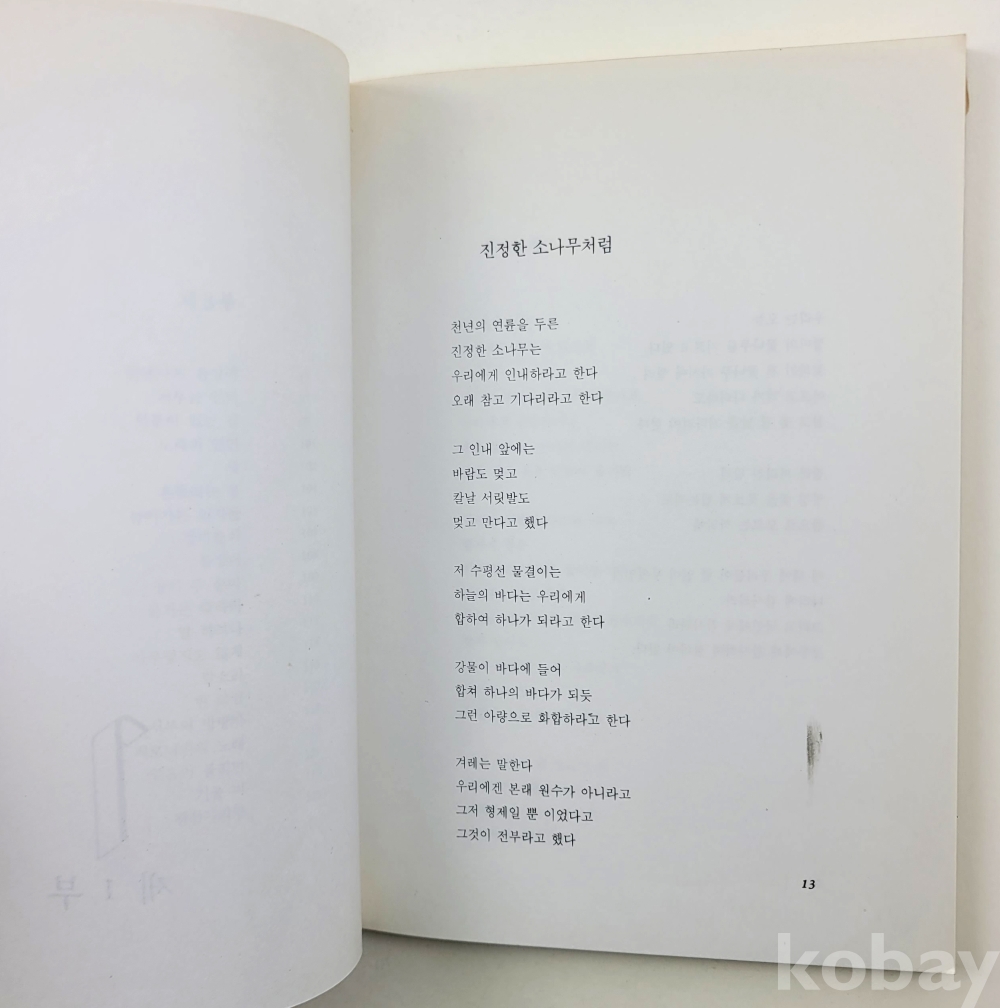 진정한 소나무처럼
천년의 연륜을 두른
진정한 소나무는
우리에게 인내하라고 한다
오래 참고 기다리라고 한다
그 인내 앞에는
바람도 멎고
칼날 서릿발도
멎고 만다고 했다
저 수평선 물결이는
하늘의 바다는 우리에게
합하여 하나가 되라고 한다
강물이 바다에 들어
합쳐 하나의 바다가 되듯
그런 아량으로 화합하라고 한다
겨레는 말한다
우리에겐 본래 원수가 아니라고
그저 형제일 뿐 이었다고
그것이 전부라고 했다
13
제 1 부
kobay